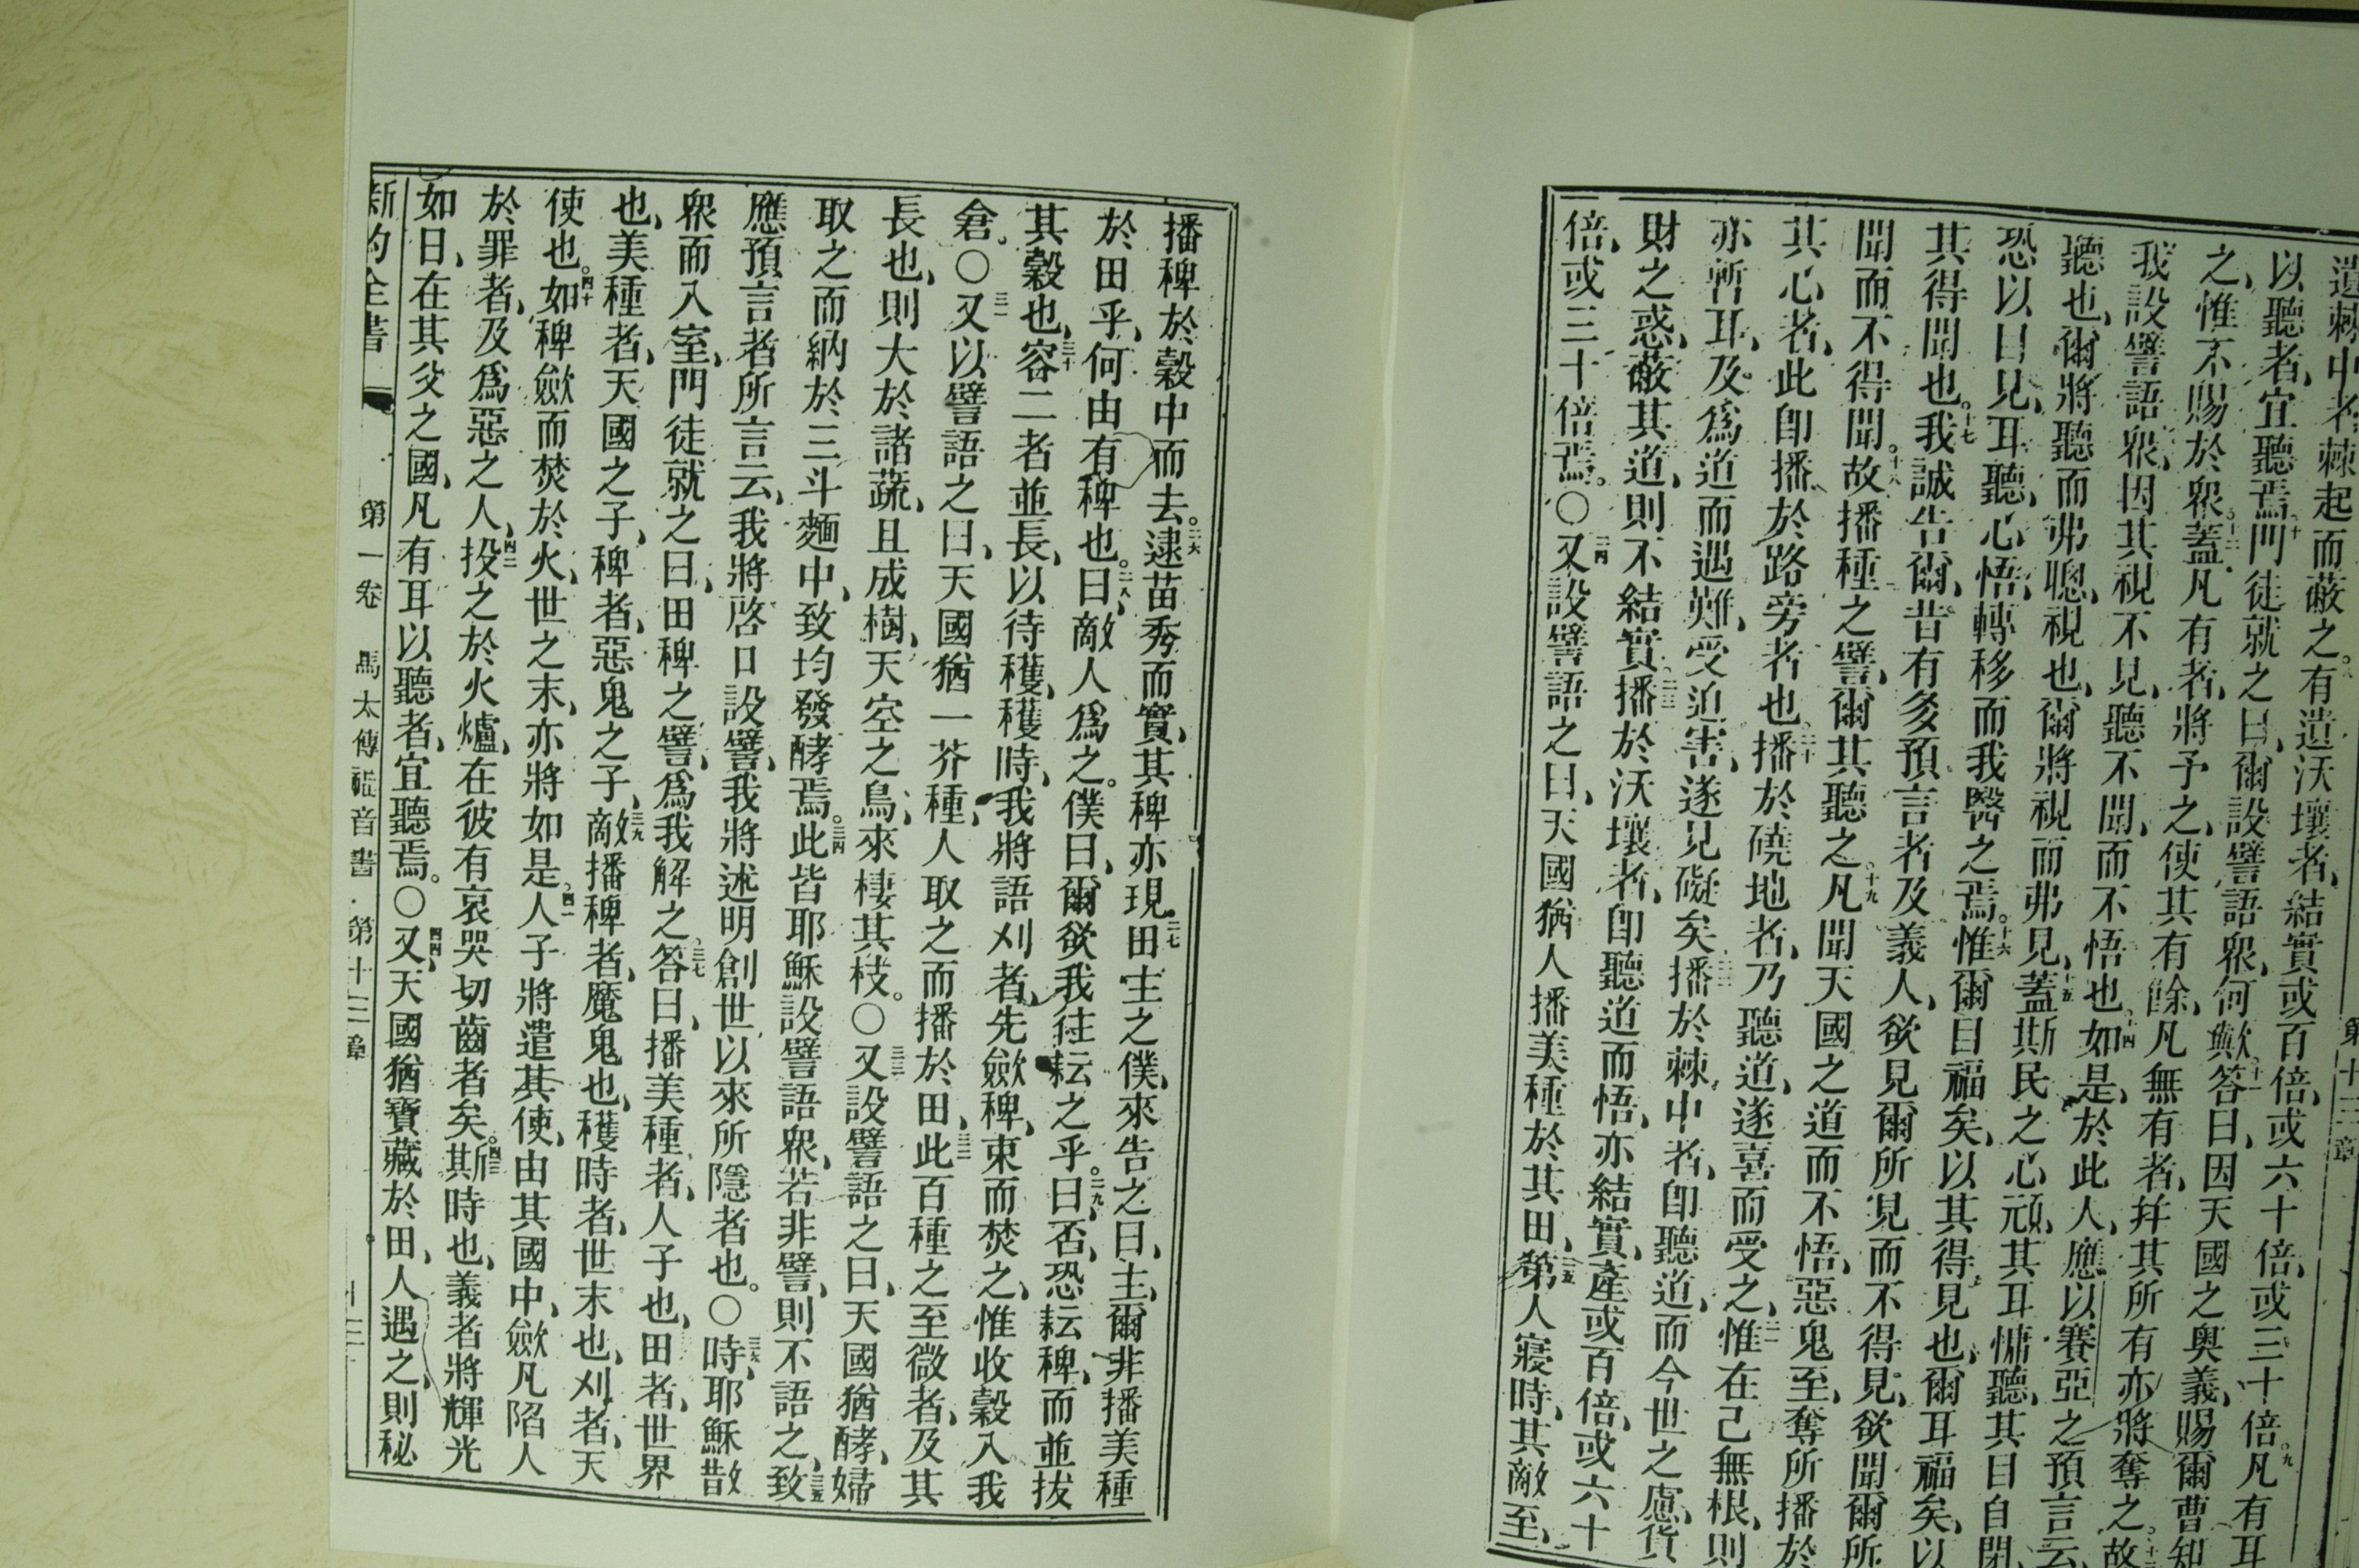 遺棘中者、棘起而蔽之。八有遺沃壤者、結實或百倍、或六十倍、或三十倍。九凡有耳
以聽者、宜聽焉。十門徒就之曰、爾設譬語衆、何歟。十一答曰、因天國之奥義、賜爾曹知
之、惟不賜於衆。十二蓋凡有者、將予之、使其有餘、凡無有者、幷其所有亦將奪之。十三故
我設譬語衆、因其視不見、聽不聞、而不悟也。十四如是、於此人、應以賽亞之預言云、
聽也、爾將聽而弗聰、視也、爾將視而弗見、十五蓋斯民之心頑、其耳慵聽、其目自閉、
恐以目見、耳聽、心悟、轉移而我醫之焉。十六惟爾目福矣、以其得見也、爾耳福矣、以
其得聞也。十七我誠告爾、昔有多預言者及義人、欲見爾所見而不得見、欲聞爾所
聞而不得聞。十八故播種之譬、爾其聽之。十九凡聞天國之道而不悟、惡鬼至、奪所播於
其心者、此卽播於路旁者也。二十播於磽地者、乃聽道、遂喜而受之、二一惟在己無根、則
亦暫耳、及爲道而遇難、受迫害、遂見礙矣。二二播於棘中者、卽聽道、而今世之慮、貨
財之惑、蔽其道、則不結實。二三播於沃壤者、卽聽道而悟、亦結實、產或百倍、或六十
倍、或三十倍焉。○二四又設譬語之曰、天國猶人播美種於其田、二五第人寢時、其敵至、
播稗於穀中而去。二六逮苗秀而實、其稗亦現。二七田主之僕、來告之曰、主、爾非播美種
於田乎、何由有稗也。二八曰、敵人爲之。僕曰、爾欲我往耘之乎。二九曰、否、恐耘稗、而並拔
其穀也、三十容二者並長、以待穫、穫時、我將語刈者、先斂稗、束而焚之、惟收穀入我
倉。○三一又以譬語之曰、天國猶一芥種、人取之而播於田、三二此百種之至微者、及其
長也、則大於諸蔬、且成樹、天空之鳥、來棲其枝。○三三又設譬語之曰、天國猶酵、婦
取之而納於三斗麵中、致均發酵焉。三四此皆耶穌設譬語衆、若非譬、則不語之、三五致
應預言者所言云、我將啓口設譬、我將述明創世以來所隱者也。○三六時、耶穌散
衆而入室、門徒就之曰、田稗之譬、爲我解之。三七答曰、播美種者、人子也、田者、世界
也、美種者、天國之子、稗者、惡鬼之子、三九敵播稗者、魔鬼也、穫時者、世末也、刈者、天
使也。四十如稗斂而焚於火、世之末、亦將如是。四一人子將遣其使、由其國中、斂凡陷人
於罪者、及爲惡之人、四二投之於火爐、在彼有哀哭切齒者矣。四三斯時也、義者將輝光
如日、在其父之國、凡有耳以聽者、宜聽焉。○四四又天國猶寶藏於田、人遇之、則秘
新約全書 第一卷 馬太傳福音書 第十三章 十三